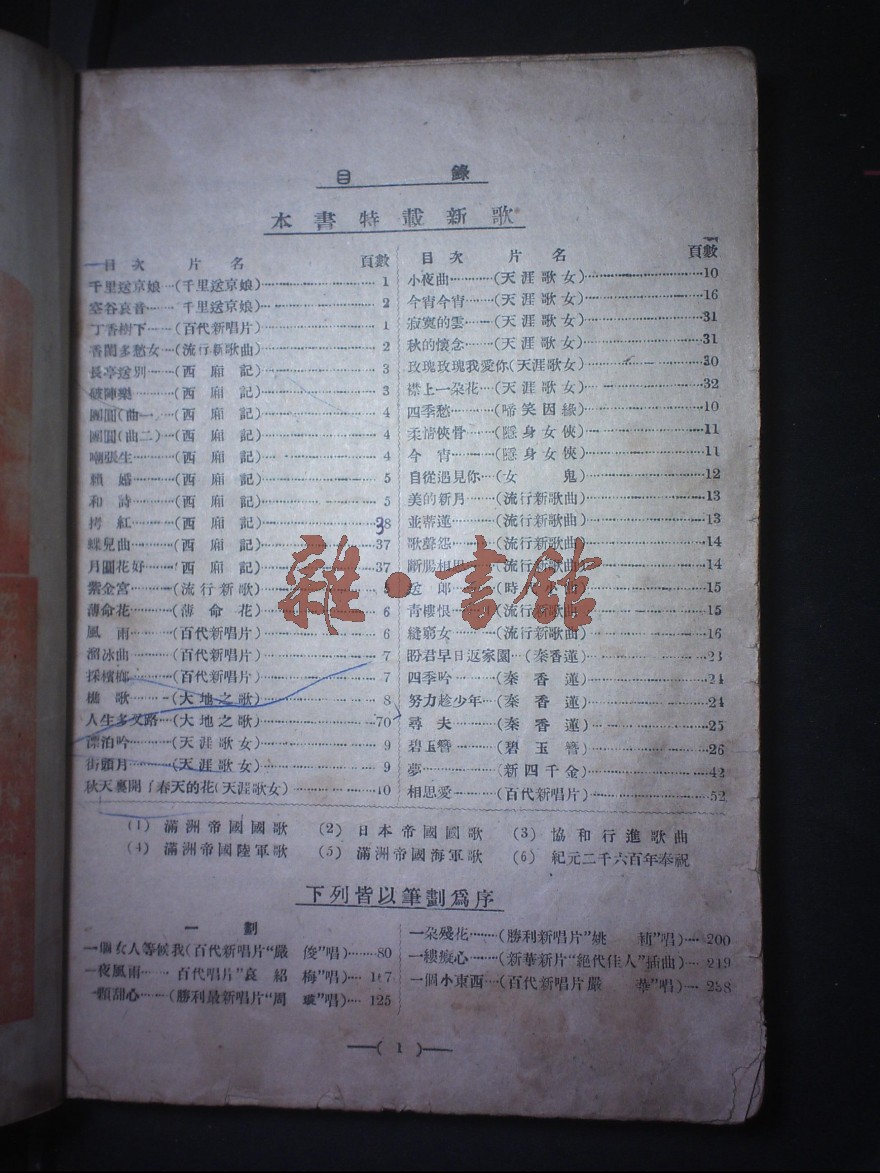 目錄
本書特載新歌
目次 片名 頁數
千里送京娘…(千里送京娘)……1
空谷哀音… 千里送京娘)……2
丁香樹下…(百代新唱片)……1
香閨多愁女…(流行新歌曲)……2
長亭送別…(西廂記)……3
破陣樂……(西廂記)……3
團圓(曲一)…(西廂記)……4
團圓(曲二)…(西廂記)……4
嘲張生……(西廂記)……4
賴婚……(西廂記)……5
和詩……(西廂記)……5
拷紅……(西廂記)……38
蝶兒曲……(西廂記)……37
月圓花好…(西廂記)……37
紫金宮……(流行新歌)……5
薄命花……(薄命花)……6
風雨……(百代新唱片)……6
溜冰曲……(百代新唱片)……7
採檳榔……(百代新唱片)……7
樵歌……(大地之歌)……8
人生多叉路…(大地之歌)……70
漂泊吟……(天涯歌女)……9
街頭月……(天涯歌女)……9
秋天裏開了春天的花(天涯歌女)……10
目次 片名 頁數
小夜曲……(天涯歌女)……10
今宵今宵……(天涯歌女)……16
寂寞的雲……(天涯歌女)……31
秋的懷念……(天涯歌女)……31
玫瑰玫瑰我愛你(天涯歌女)……30
襟上一朶花…(天涯歌女)……32
四季愁……(啼笑因緣)……10
柔情俠骨……(隱身女俠)……11
今宵……(隱身女俠)……11
自從遇見你…(女鬼)……12
美的新月……(流行新歌曲)……13
並蒂蓮……(流行新歌曲)……13
歌聲怨……(流行新歌曲)……14
斷腸相思(流行新歌曲)……14
送郎……(時 曲)……15
青樓恨……(流行新歌曲)……15
縫窮女……(流行新歌曲)……16
盼君早日返家園…(秦香蓮)……23
四季吟……(秦香蓮)……24
努力趁少年…(秦香蓮)……24
尋夫……(秦香蓮)……25
碧玉簪……(碧玉簪)……26
夢……(新四千金)……42
相思愛……(百代新唱片)……52
(1) 滿洲帝國國歌 (2) 日本帝國國歌 (3) 協和行進歌曲
(4) 滿洲帝國陸軍歌 (5) 滿洲帝國海軍歌 (6) 紀元二千六百年奉祝
下列皆以筆劃爲序
一劃
一個女人等候我(百代新唱片“嚴俊”唱)……80
一夜風雨…… 百代唱片“袁紹梅”唱)…187
一顆甜心……(勝利最新唱片“周璇”唱)…125
一朶殘花……(勝利新唱片“姚莉”唱)…200
一縷癡心……(新華新片“絕代佳人”插曲)…219
一個小東西…(百代新唱片嚴華”唱)…238
—( 1 )—
雜·書舘